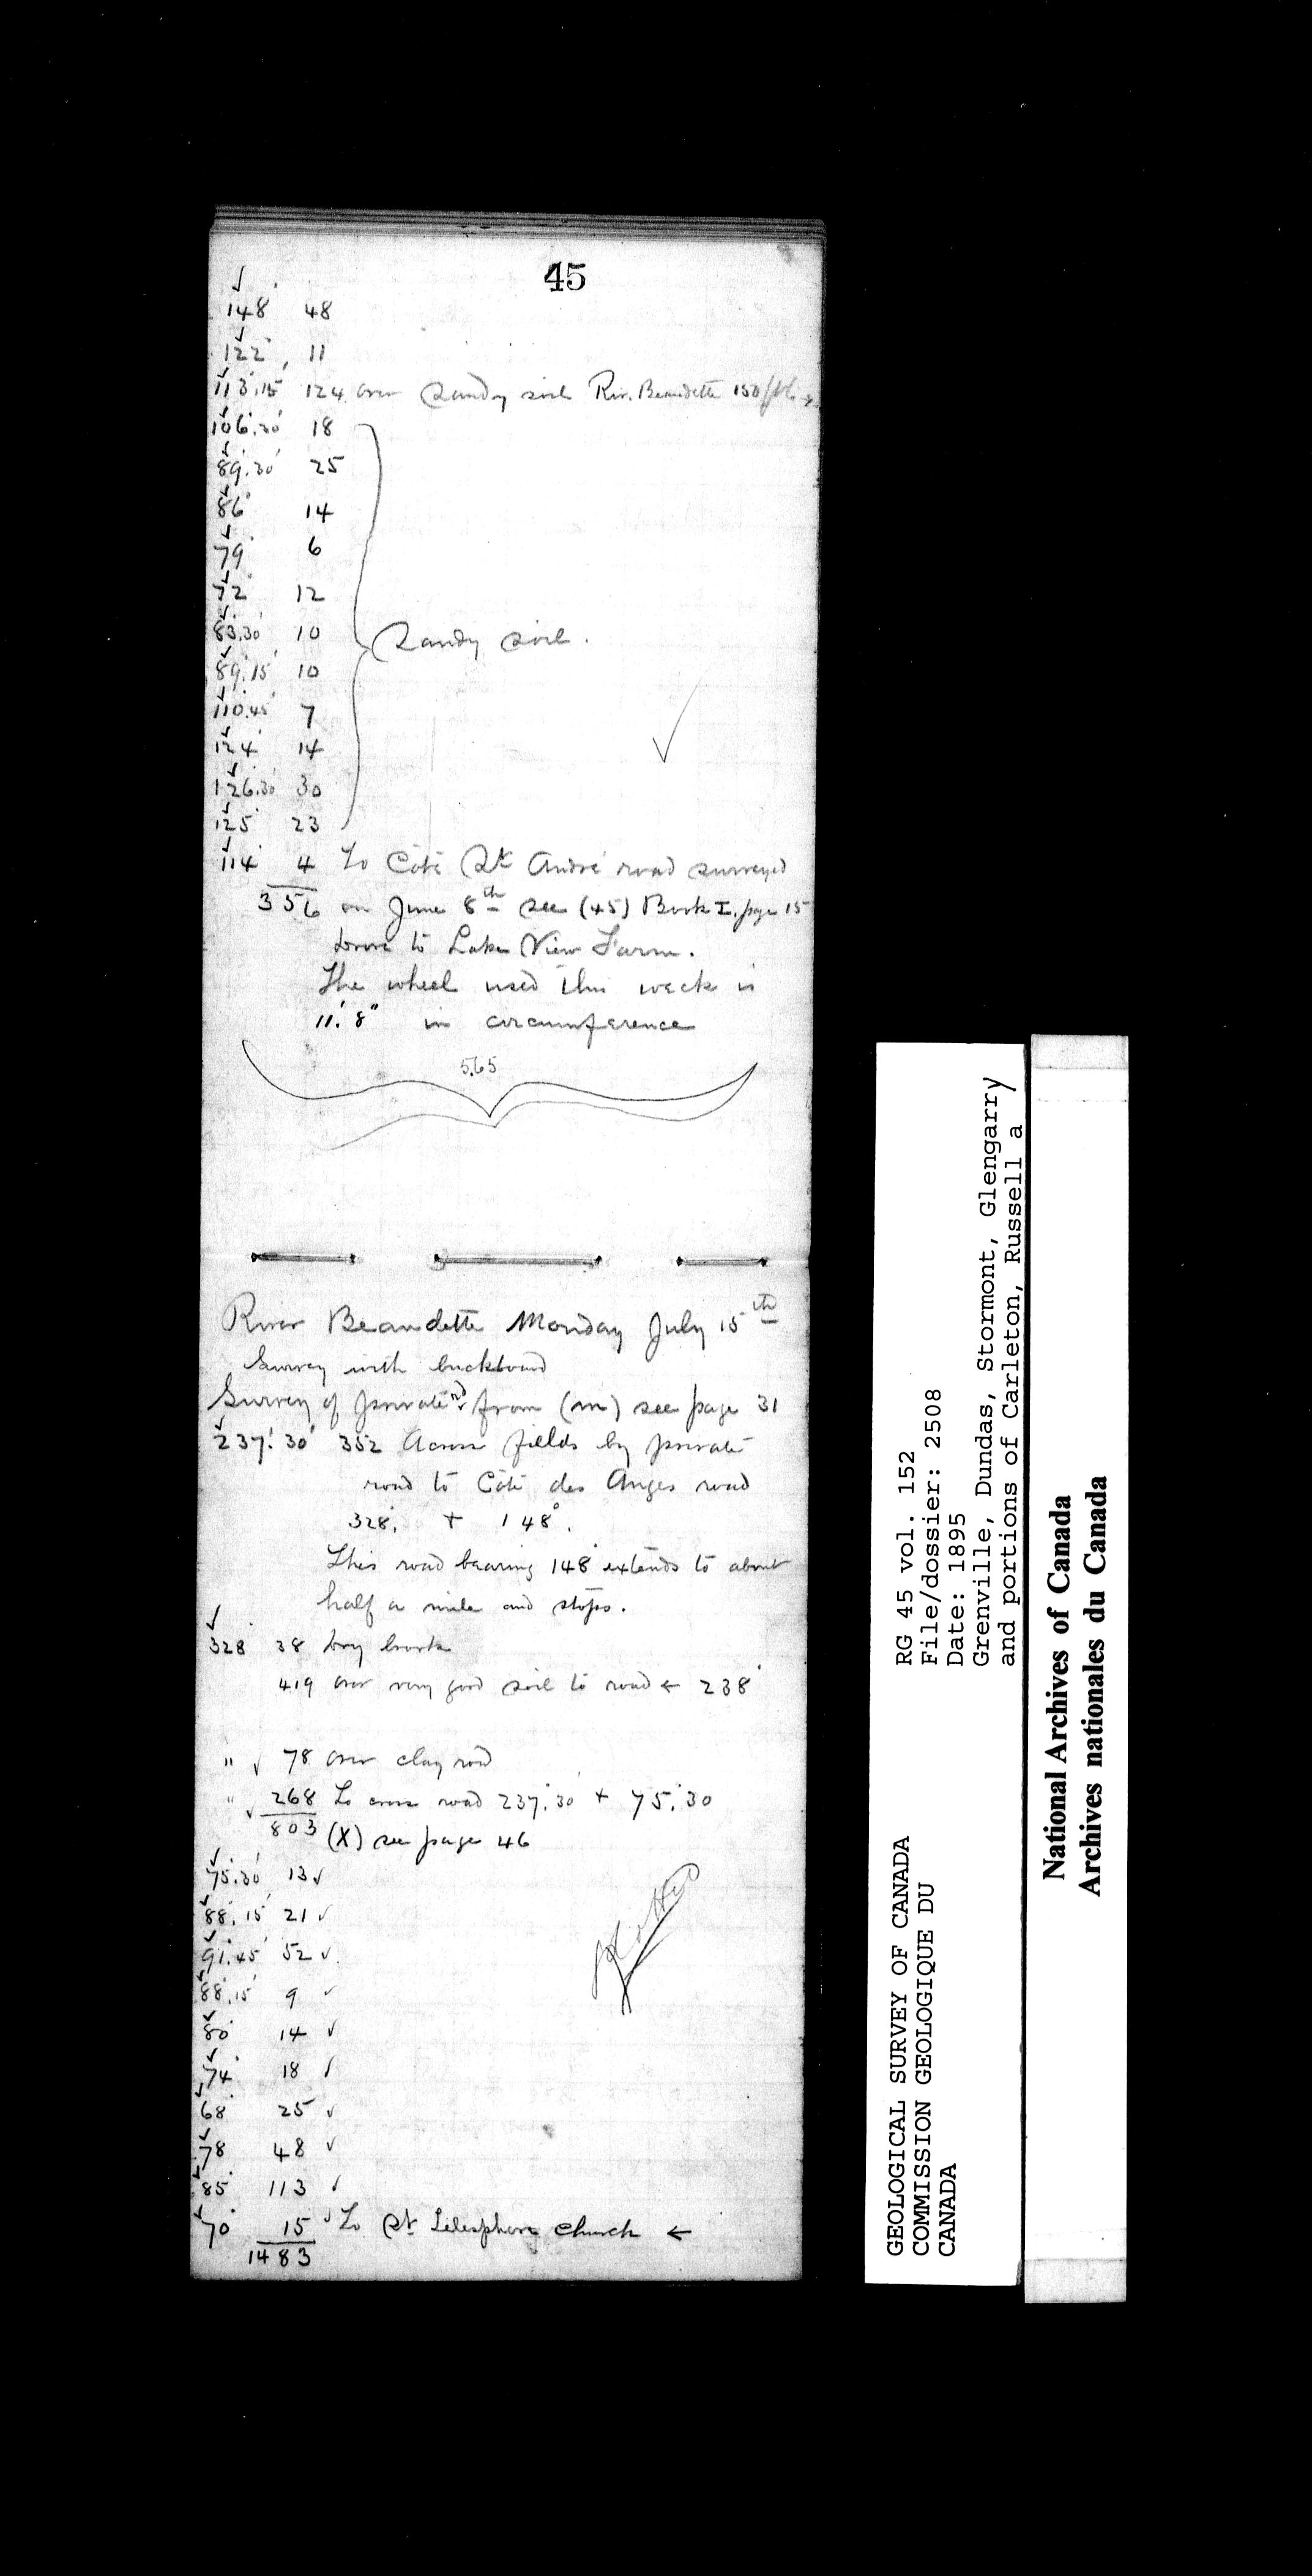 45
148° 48
122° 11
113°.15' 124 over Sandy soil Riv. Beaudette 150
106°.30' 18
89°.30' 25
86° 14
79° 6
72° 12
83°.30' 10
Sandy soil.
89°.15' 10
110°.45' 7
124° 14
126°.30' 30
125° 23
114° 4 To Côté St André road surveyed
356 on June 8th see (45) Book I, page 15
drove to Lake View Farm.
The wheel used this week is
11' 8" in circumference
5.65
River Beaudette Monday July 15th
Survey with buckboard
Survey of private rd from (m) see page 31
237°.30' 352 Across fields by private
road to Côté des Anges road
328° + 148°.
This road bearing 148° extends to about
half a mile and stops.
328° 38 dry brook
419 over very good soil to road ← 238°
" 78 over clay road
" 268 To cross road 237°.30' + 75°.30
803 (X) see page 46
75°.30' 13
88°.15' 21
91°.45' 52
88°.15' 9
80° 14
74° 18
68° 25
78° 48
85° 113
70° 15 To St Telesphore Church ←
1483
GEOLOGICAL SURVEY OF CANADA
COMMISSION GEOLOGIQUE DU
CANADA
RG 45 vol. 152
File/dossier: 2508
Date: 1895
Grenville, Dundas, Stormont, Glengarry
and portions of Carleton, Russell a
National Archives of Canada
Archives nationales du Canada